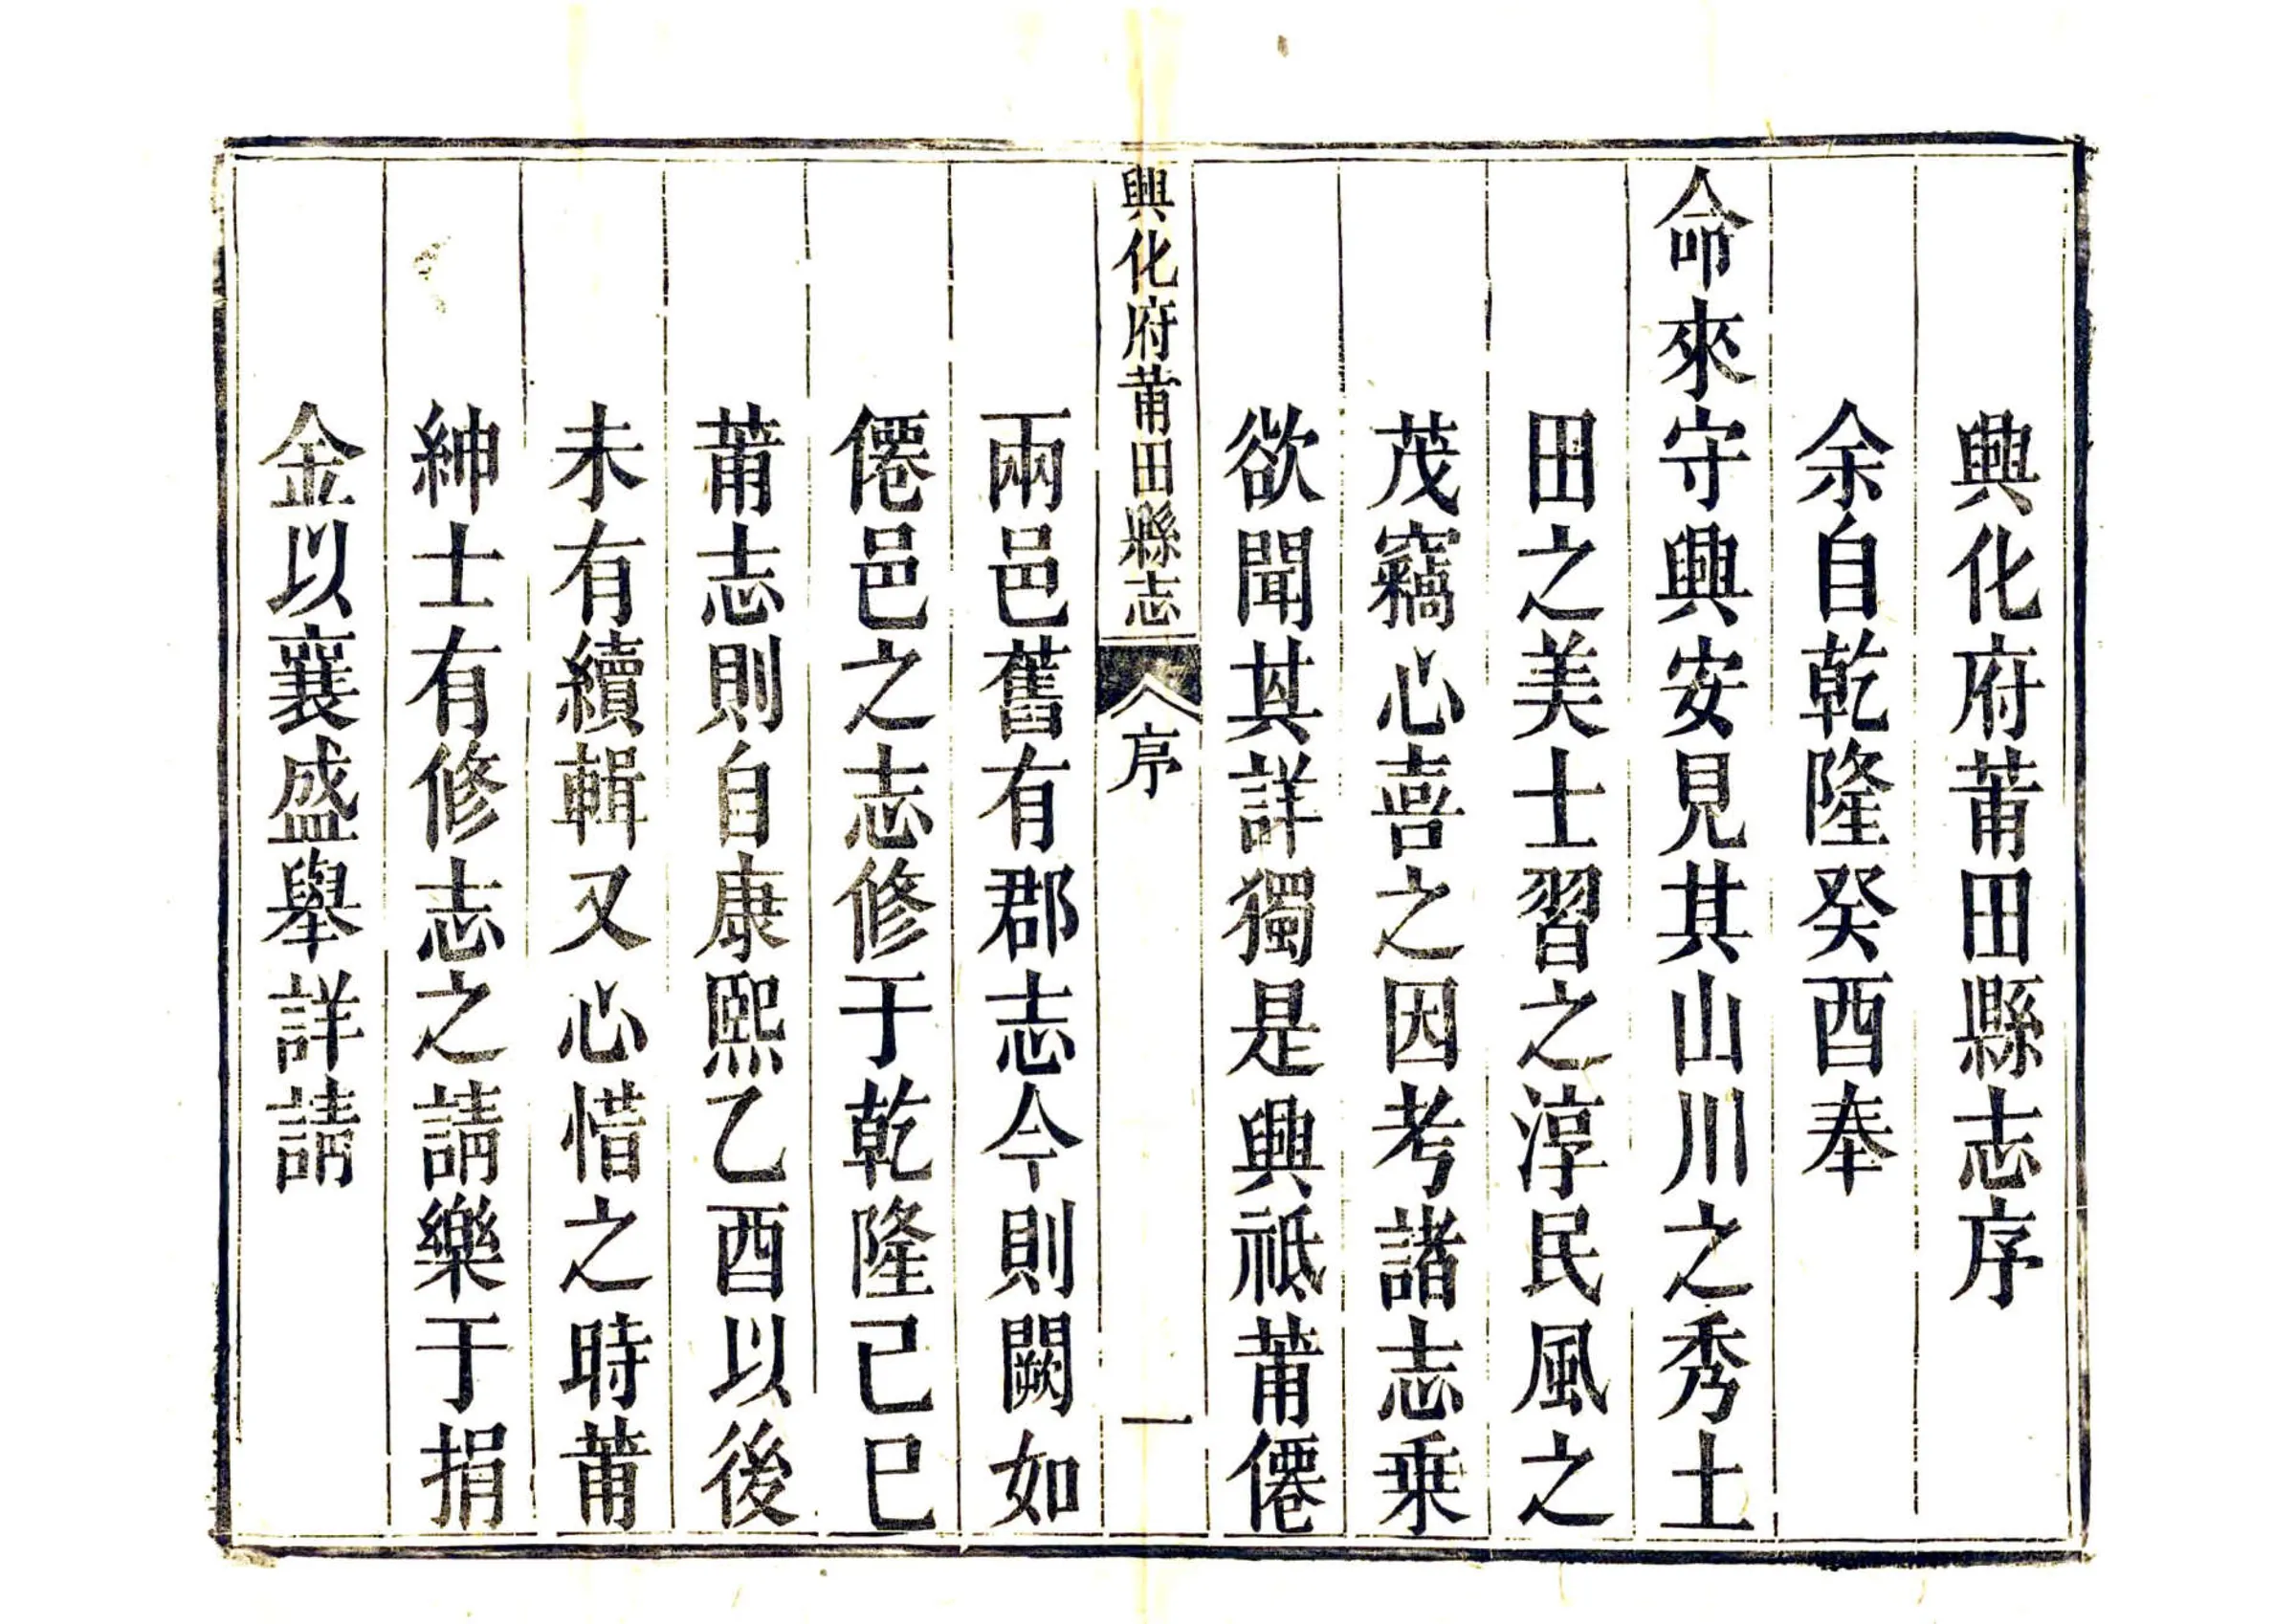 興化府莆田縣志序
余自乾隆癸酉奉
命來守興安見其山川之秀土
田之美士習之淳民風之
茂竊心喜之因考諸志乗
欲聞其詳獨是興祗莆僊
興化府莆田縣志 序 一
兩邑舊有郡志今則闕如
僊邑之志修于乾隆已巳
莆志則自康熙乙酉以後
未有續輯又心惜之時莆
紳士有修志之請樂于捐
金以襄盛舉詳請